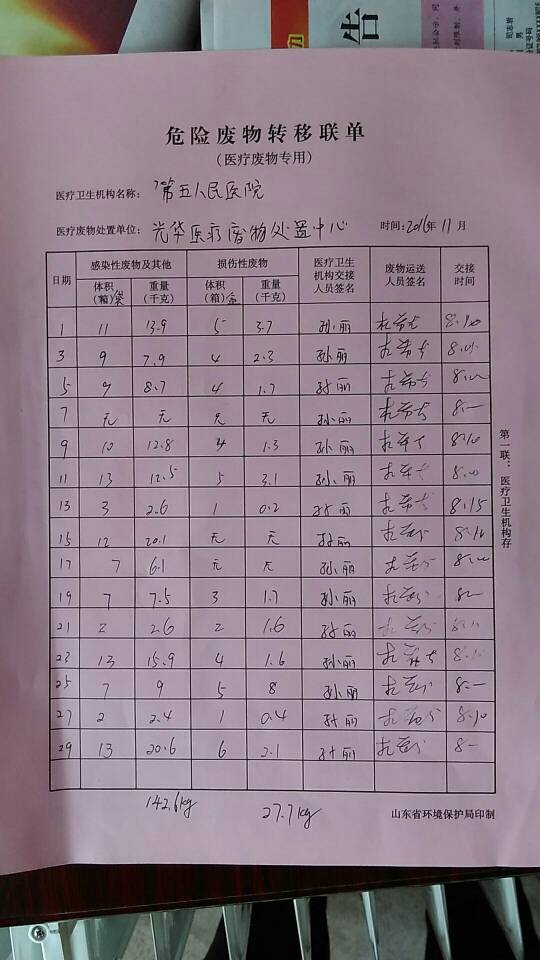 告
危险废物转移联单
(医疗废物专用)
医疗卫生机构名称: 第五人民医院
医疗废物处置单位: 光华医疗废物处置中心 时间: 2016年 11月
日期 感染性废物及其他 损伤性废物 医疗卫生机构交接人员签名 废物运送人员签名 交接时间
体积(箱)袋 重量(千克) 体积(箱)盒 重量(千克)
1 11 13.9 5 3.7 孙丽 8:10
3 9 7.9 4 2.3 孙丽
5 9 8.7 4 1.7 孙丽
7 无 无 无 无 孙丽 8:—
9 10 12.8 4 1.3 孙丽 8:10
11 13 12.5 5 3.1 孙丽
13 3 2.6 1 0.2 孙丽 8:15
15 12 20.1 无 无 孙丽 8:10
17 7 6.1 无 无 孙丽
19 7 7.5 3 1.7 孙丽 8—
21 2 2.6 2 1.6 孙丽
23 13 15.9 4 1.6 孙丽
25 7 9 5 8 孙丽 8:—
27 2 2.4 1 0.4 孙丽 8:10
29 13 20.6 6 2.1 孙丽 8—
142.6kg 27.7kg
山东省环境保护局印制
第一联:医疗卫生机构存